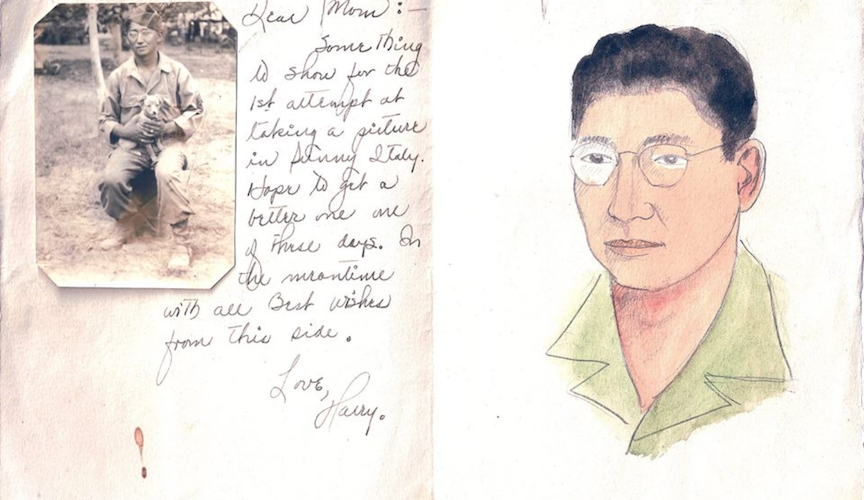 Dear Mom:—
Something
to show for the
1st attempt at
taking a picture
in Sunny Italy.
Hope to get a
better one one
of these days. In
the meantime
with all Best wishes
from this side.
Love,
Harry.